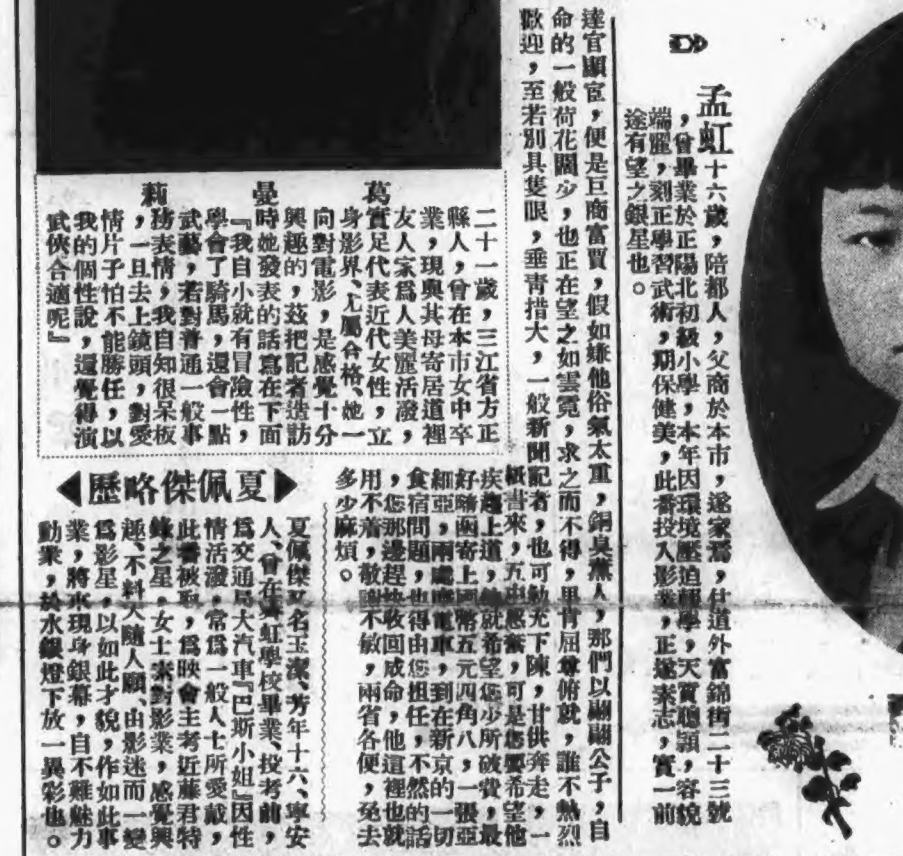 孟虹 十六歲，陪都人，父商於本市，遂家焉，住道外富錦街二十三號
，曾畢業於正陽北初級小學，本年因環境壓迫輟學，天資聰穎，容貌
端麗，刻正學習武術，期保健美，此番投入影業，正遂素志，實一前
途有望之銀星也。
達官顯宦，便是巨商富賈，假如嫌他俗氣太重，銅臭薰人，那們以翩翩公子，自
命的一般荷花闊少，也正在望之如雲霓，求之而不得，果肯屈尊俯就，誰不熱烈
歡迎，至若別具隻眼，垂青措大，一般新聞記者，也可勳充下陳，甘供奔走，一
紙書來，五中感奮，可是您要希望他
疾趨上道，他就希望您少所破費，最
好隨函寄上國幣五元四角八，一張亞
細亞，兩處電車，到在新京的一切
食宿問題，也得由您担任，不然的話
，您那邊趕快收回成命，他這裡也就
用不着，敬謝不敏，兩省各便，免去
多少麻煩。
葛曼莉
二十一歲，三江省方正
縣人，曾在本市女中卒
業，現與其母寄居道裡
友人家爲人美麗活潑，
實足代表近代女性，立
身影界、尤屬合格、她一
向對電影，是感覺十分
興趣的，茲把記者造訪
時她發表的話寫在下面
『我自小就有冒險性，
學會了騎馬，還會一點
武藝，若對普通一般事
務表情，我自知很呆板
，一旦去上鏡頭，對愛
情片子怕不能勝任，以
我的個性說，還覺得演
武俠合適呢』
夏佩傑略歷
夏佩傑又名玉潔、芳年十六、寧安
人、曾在霽虹學校畢業、投考前，
爲交通局大汽車『巴斯小姐』因性
情活潑，常爲一般人士所愛戴，
此番被取，爲映會主考近藤君特
錄之星，女士素對影業，感覺興
趣、不料天隨人願、由影迷而一變
爲影星，以如此才貌，作如此事
業，將來現身銀幕，自不難魅力
動衆，於水銀燈下放一異彩也。